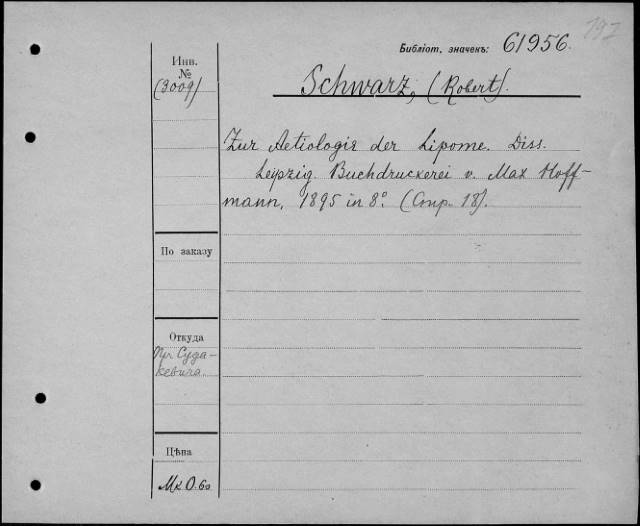 197
Библіот. значекъ: 61956.
Инв.
№
(3009)
Schwarz, (Robert).
Zur Aetiologie der Lipome. Diss.
Leipzig. Buchdruckerei v. Max Hoff-
mann, 1895 in 8°. (Стр. 18).
По заказу
Откуда
Пр. Суда-
кевича.
Цѣна
Mk 0.60